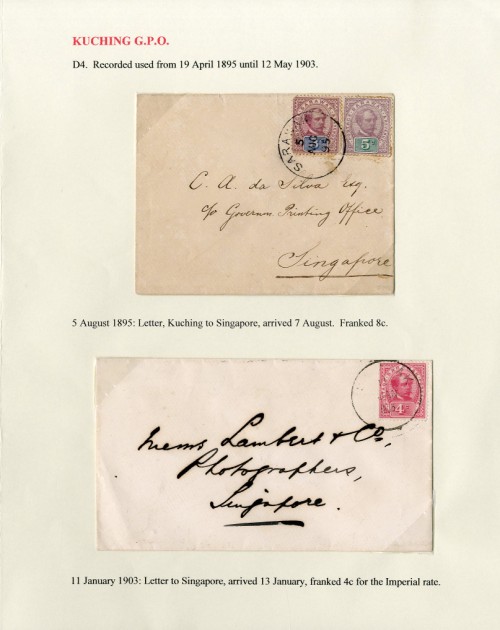 KUCHING G.P.O.
D4. Recorded used from 19 April 1895 until 12 May 1903.
SARAWAK
5
AUG
95
5c
C. A. da Silva Esq.
c/o Governm. Printing Office
Singapore
5 August 1895: Letter, Kuching to Singapore, arrived 7 August. Franked 8c.
4c
Messrs Lambert & Co,
Photographers,
Singapore.
11 January 1903: Letter to Singapore, arrived 13 January, franked 4c for the Imperial rate.